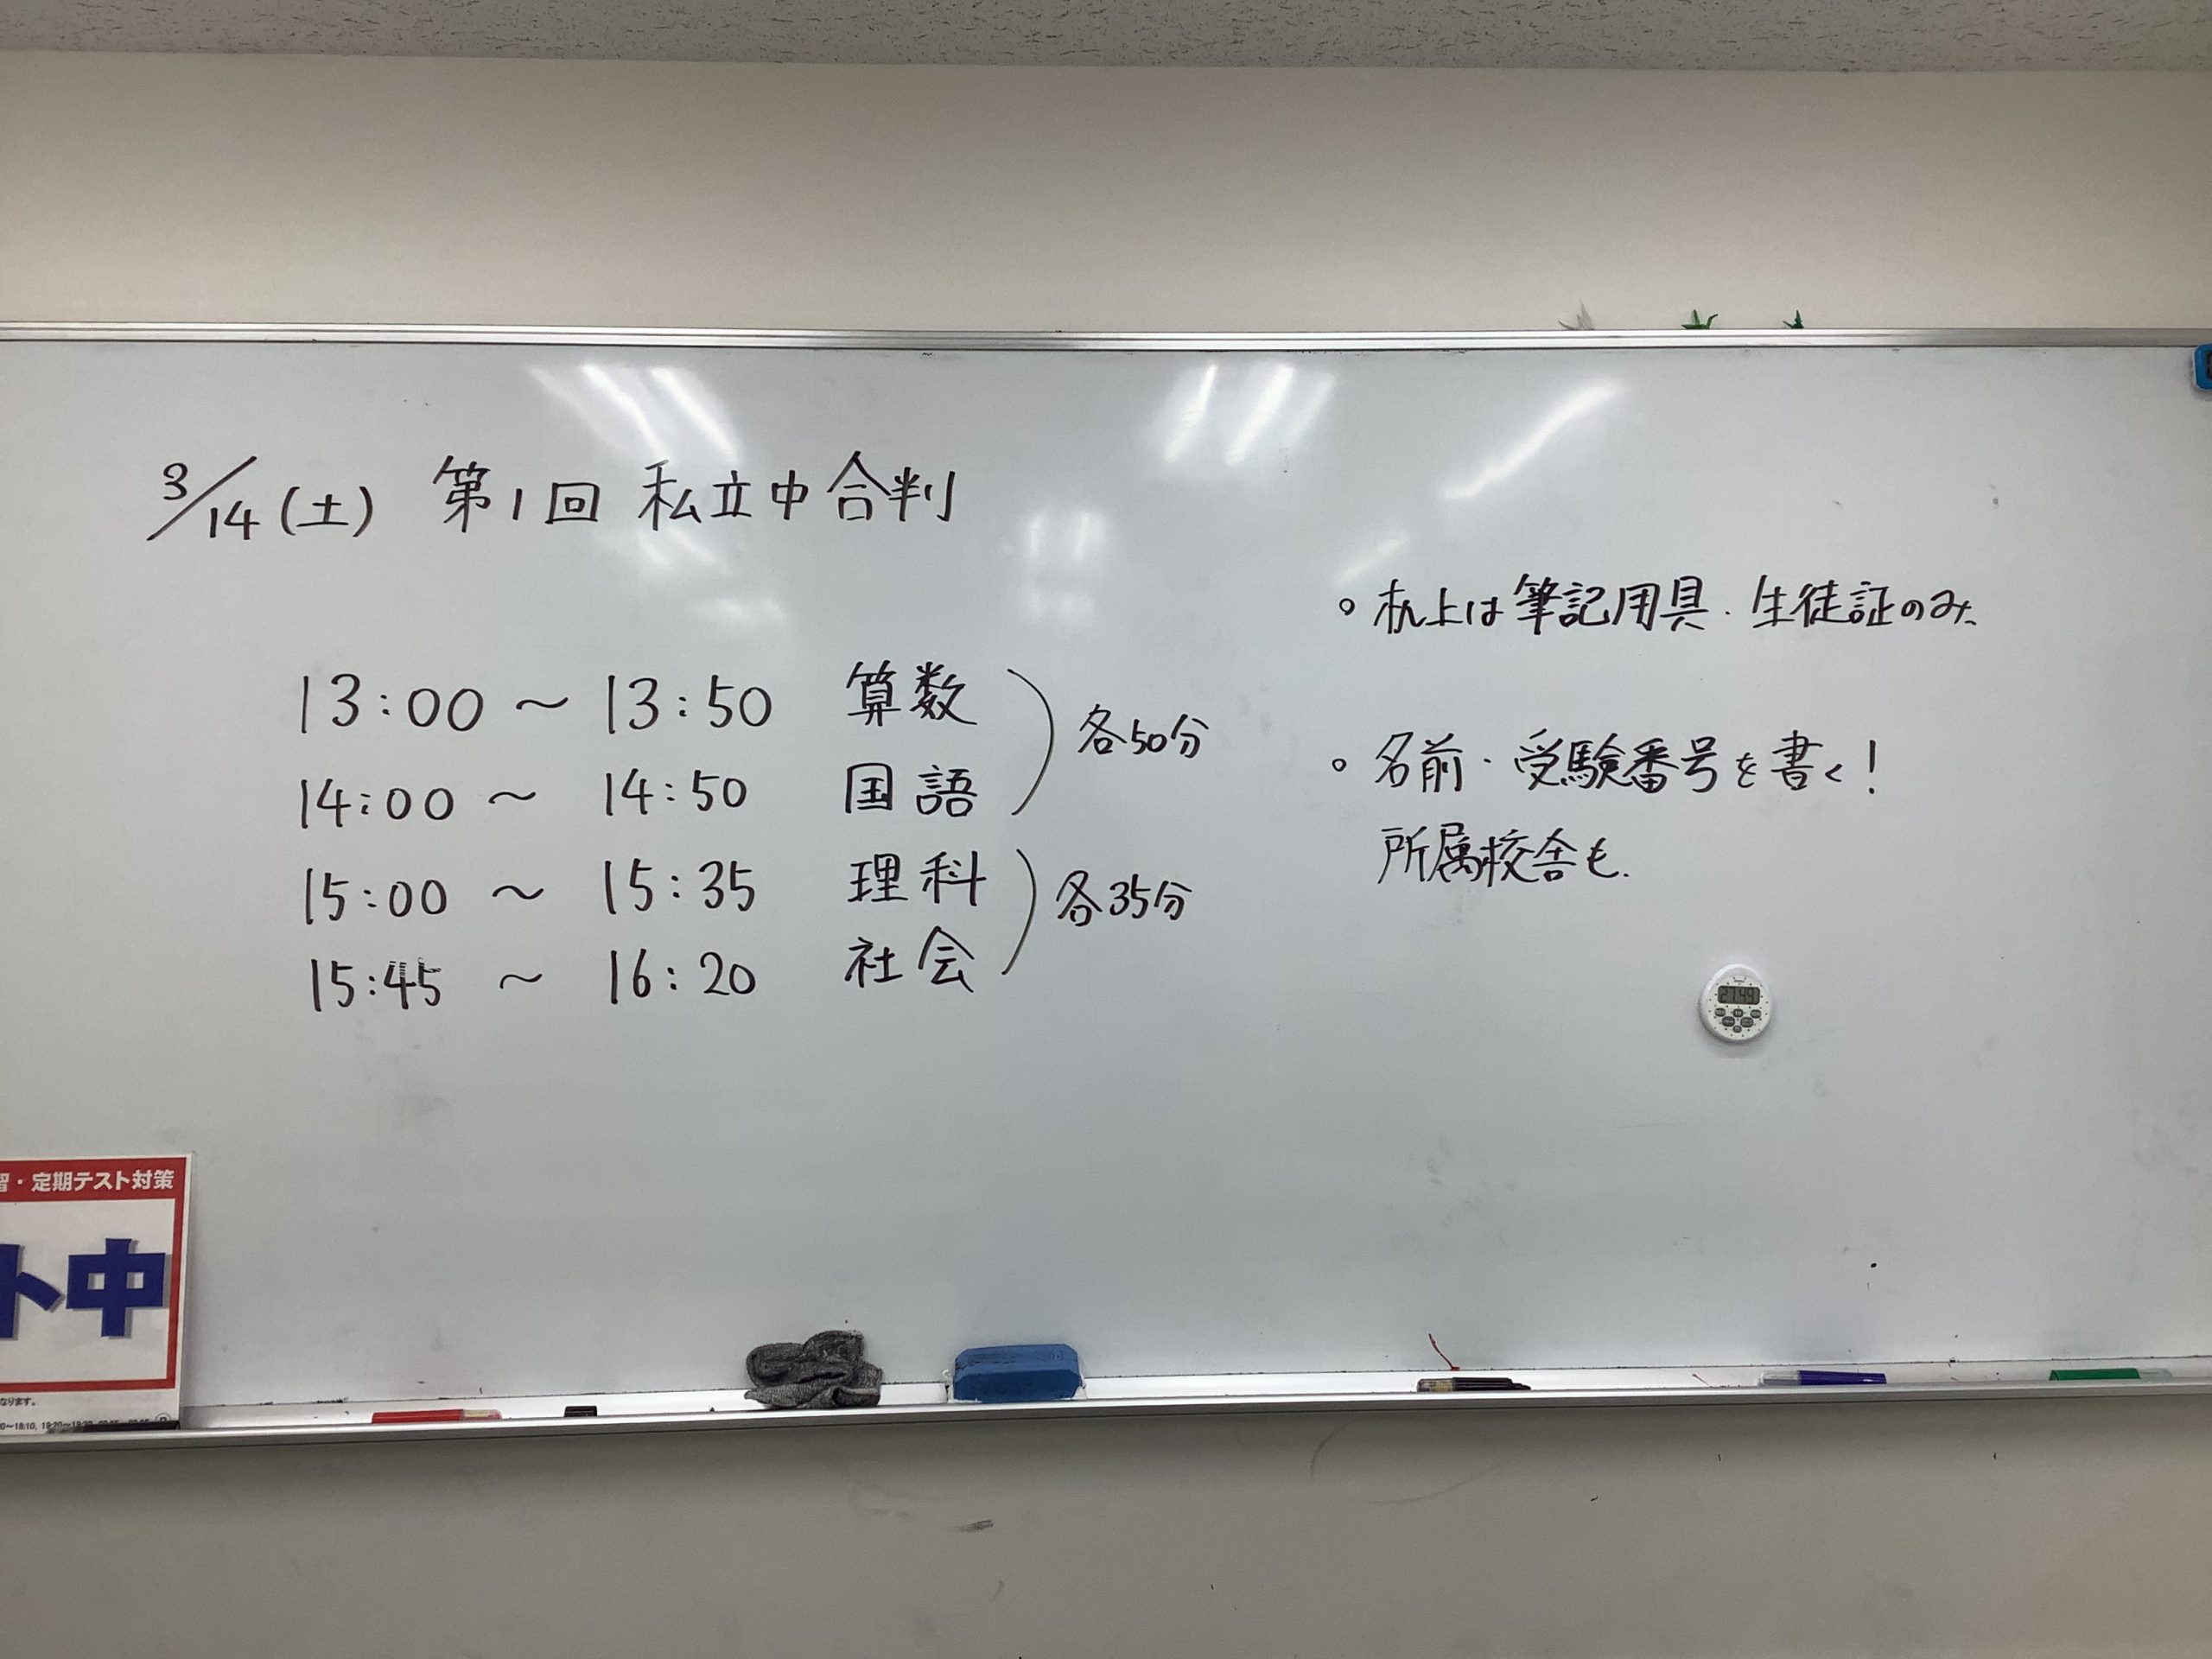 3/14(土) 第1回 私立中合判
13:00 ～ 13:50 算数
14:00 ～ 14:50 国語
各50分
15:00 ～ 15:35 理科
15:45 ～ 16:20 社会
各35分
。机上は筆記用具・生徒証のみ.
。名前・受験番号を書く!
所属校舎も.
習・定期テスト対策
ト中
なります。